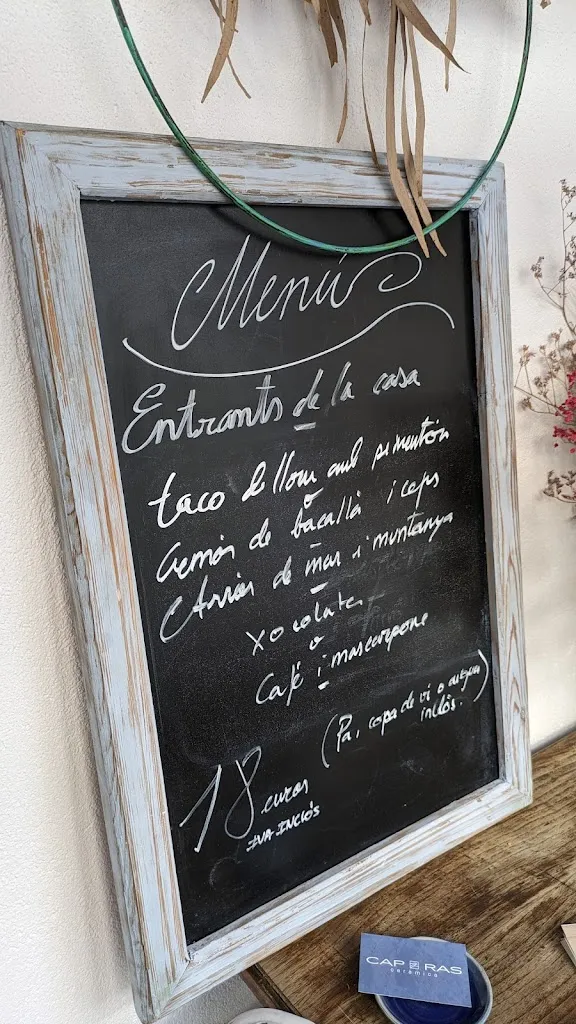 Menú
Entrants de la casa
taco de llom amb pimentón
o
Cremós de bacallà i ceps
o
Arròs de mar i muntanya
xocolates
o
Café i mascarpone
(Pa, copa de vi o aigua
inclòs.)
18 euros
IVA INCLÒS
CAP RAS
ceràmica